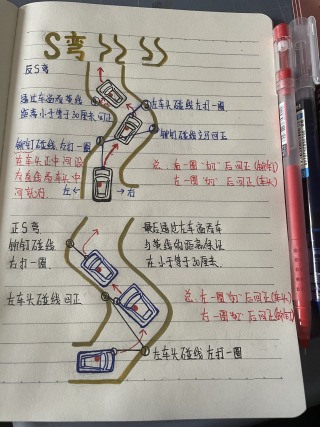 S弯
反S弯
通过车窗看黄线
距离小于等于30厘米回正
左车头碰线右打一圈
铆钉碰线立马回正
铆钉碰线,左打一圈
在车头正中间设
为底线与车头中
间就好
左← →右
总:右一圈"切"后回正(铆钉)
左一圈"切"后回正(车头)
正S弯
铆钉碰线
右打一圈
最后通过左车窗看车
与黄线的距离保证
在小于等于30厘米
左车头碰线回正
总:左一圈"切"后回正(车头)
右一圈"切"后回正(铆钉)
左车头碰线 左打一圈